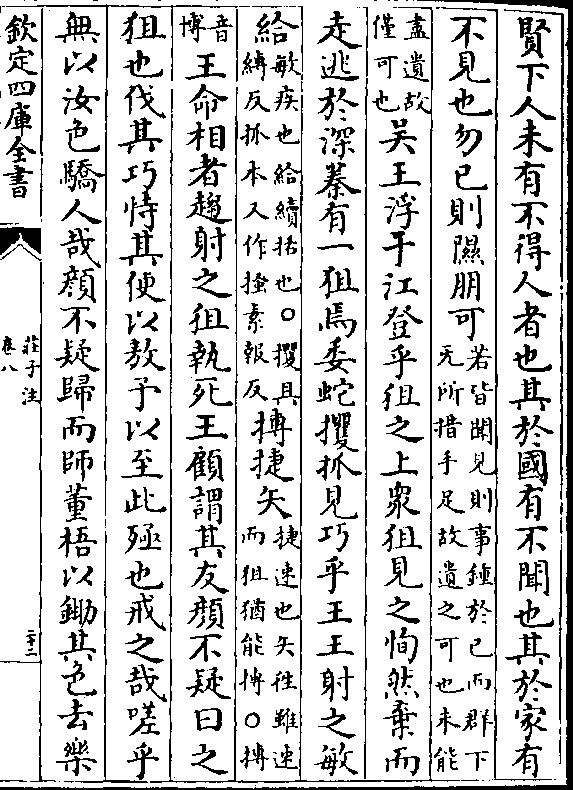 賢下人未有不得人者也其於國有不聞也其於家有
不見也勿已則隰朋可若皆聞見則事鍾於己而群下无所措手足故遺之可也未能
盡遺故僅可也吴王浮于江登乎狙之上衆狙見之恂然棄而
走逃於深蓁有一狙焉委蛇攫抓見巧乎王王射之敏
給敏疾也給續括也○攫具縛反抓本又作搔素報反搏捷矢捷速也矢往雖速而狙猶能搏○搏
音博王命相者趨射之狙執死王顧謂其友顔不疑曰之
狙也伐其巧恃其便以敖予以至此殛也戒之哉嗟乎
無以汝色驕人哉顔不疑歸而師董梧以鋤其色去樂
欽定四庫全書
莊子注
卷八